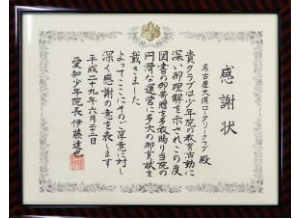 感謝状
名古屋大須ロータリークラブ殿
貴クラブは少年院の教育活動に
深い御理解を示されこの度
図書の御寄贈を多数賜り当院の
円滑な運営に多大の御貢献を
戴きました
よってここにその御厚意に対し
深く感謝の意を表します
平成二十九年六月二十二日
愛知少年院長伊藤達也